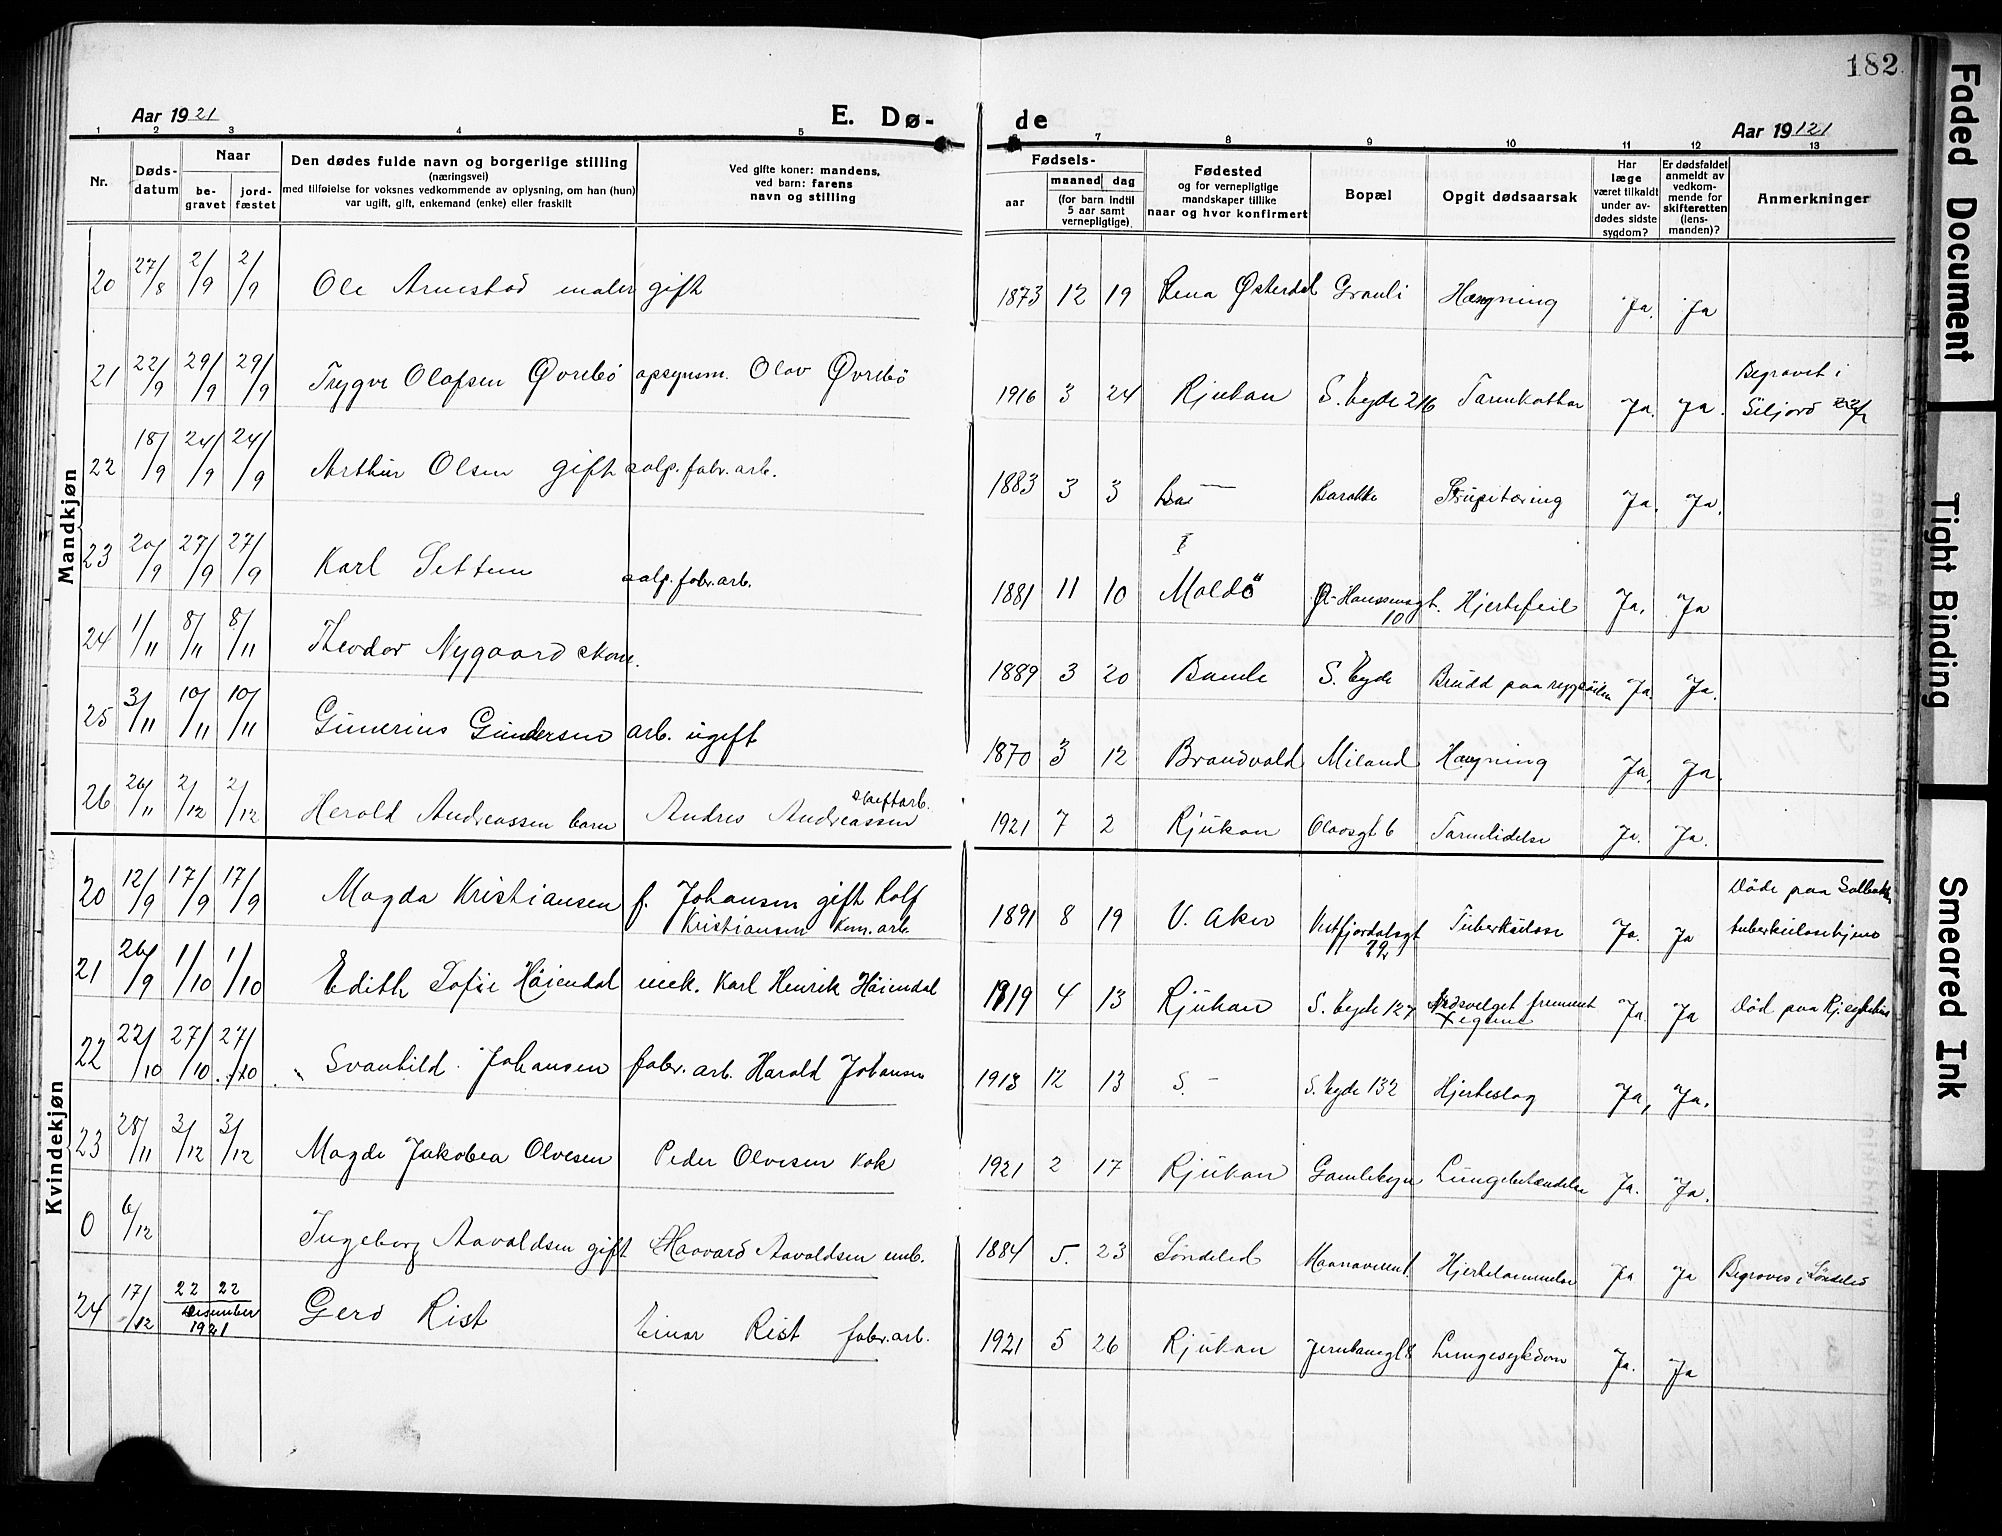 182
Aar 1921
E. Dø-
de
Aar 19121
1 2 3 4 5 6 7 8 9 10 11 12 13
Nr.
Døds-
datum
Naar
be-
gravet
jord-
fæstet
Den dødes fulde navn og borgerlige stilling
(næringsvei)
med tilføielse for voksnes vedkommende av oplysning, om han (hun)
var ugift, gift, enkemand (enke) eller fraskilt
Ved gifte koner: mandens,
ved barn: farens
navn og stilling
Fødsels-
aar
maaned dag
(for barn indtil
5 aar samt
vernepligtige)
Fødested
og for vernepligtige
mandskaper tillike
naar og hvor konfirmert
Bopæl
Opgit dødsaarsak
Har
læge
været tilkaldt
under av-
dødes sidste
sygdom?
Er dødsfaldet
anmeldt av
vedkom-
mende for
skifteretten
(lens-
manden)?
Anmerkninger
Mandkjøn
20 27/8 2/9 2/9 Ole Arnestad maler gift 1873 12 19 Rena Østerdal Granli Hængning Ja. Ja
21 22/9 29/9 29/9 Trygve Olafsen Øvrebö opsynsm. Olav Øvrebö 1916 3 24 Rjukan S. Eyde 216 Tarmkatar Ja. Ja. Begravet i
Siljord
22 18/9 24/9 24/9 Arthur Olsen gift salp. fabr. arb. 1883 3 3 Barakke Strupetæring Ja. Ja.
23 20/9 27/9 27/9 Karl Settem salp. fabr. arb. 1881 11 10 Moldö Hanssensgt.
10 Hjertefeil Ja. Ja
24 1/11 8/11 8/11 Theodor Nygaard skom. 1889 3 20 Bamle S. Eyde Brudd paa rygsöilen Ja. Ja.
25 3/11 10/11 10/11 Gunerius Gundersen arb. ugift 1870 3 12 Brandvold Miland Hængning Ja. Ja.
26 26/11 2/12 2/12 Herold Andreassen barn Andres Andreassen
skiftarb. 1921 7 2 Rjukan Olavsgt 6 Tarmlidelse Ja. Ja.
Kvindekjøn
20 12/9 17/9 17/9 Magda Kristiansen f. Johansen gift Rolf
Kristiansen kom. arb. 1891 8 19 V. Aker Vestfjordalsgt
72 Tuberkulose Ja. Ja Döde paa Solbakken
tuberkulosehjem
21 26/9 1/10 1/10 Edith Sofie Höiendal mek. Karl Henrik Höiendal 1919 4 13 Rjukan S. Eyde 127 Nedsvelget fremmet
legeme Ja. Ja Död paa Rj. sykehus
22 22/10 27/10 27/10 Svanhild Johansen fabr. arb. Harald Johansen 1913 12 13 S. Eyde 132 Hjerteslag Ja, Ja.
23 28/11 3/12 3/12 Magde Jakobea Olvesen Peder Olvesen kok 1921 2 17 Rjukan Gamlebyen Lungebetændelse Ja. Ja.
0 6/12 Ingeborg Aavaldsen gift Haavard Aavaldsen 1884 5. 23 Söndeled Hjertelammelse Ja Ja Begraves i Söndeled
24 17/12 22 22
Desember
1921 Gerd Rist Einar Rist fabr. arb. 1921 5 26 Rjukan Jernbanegt 8 Lungesykdom Ja. Ja
Faded Document
Tight Binding
Smeared Ink